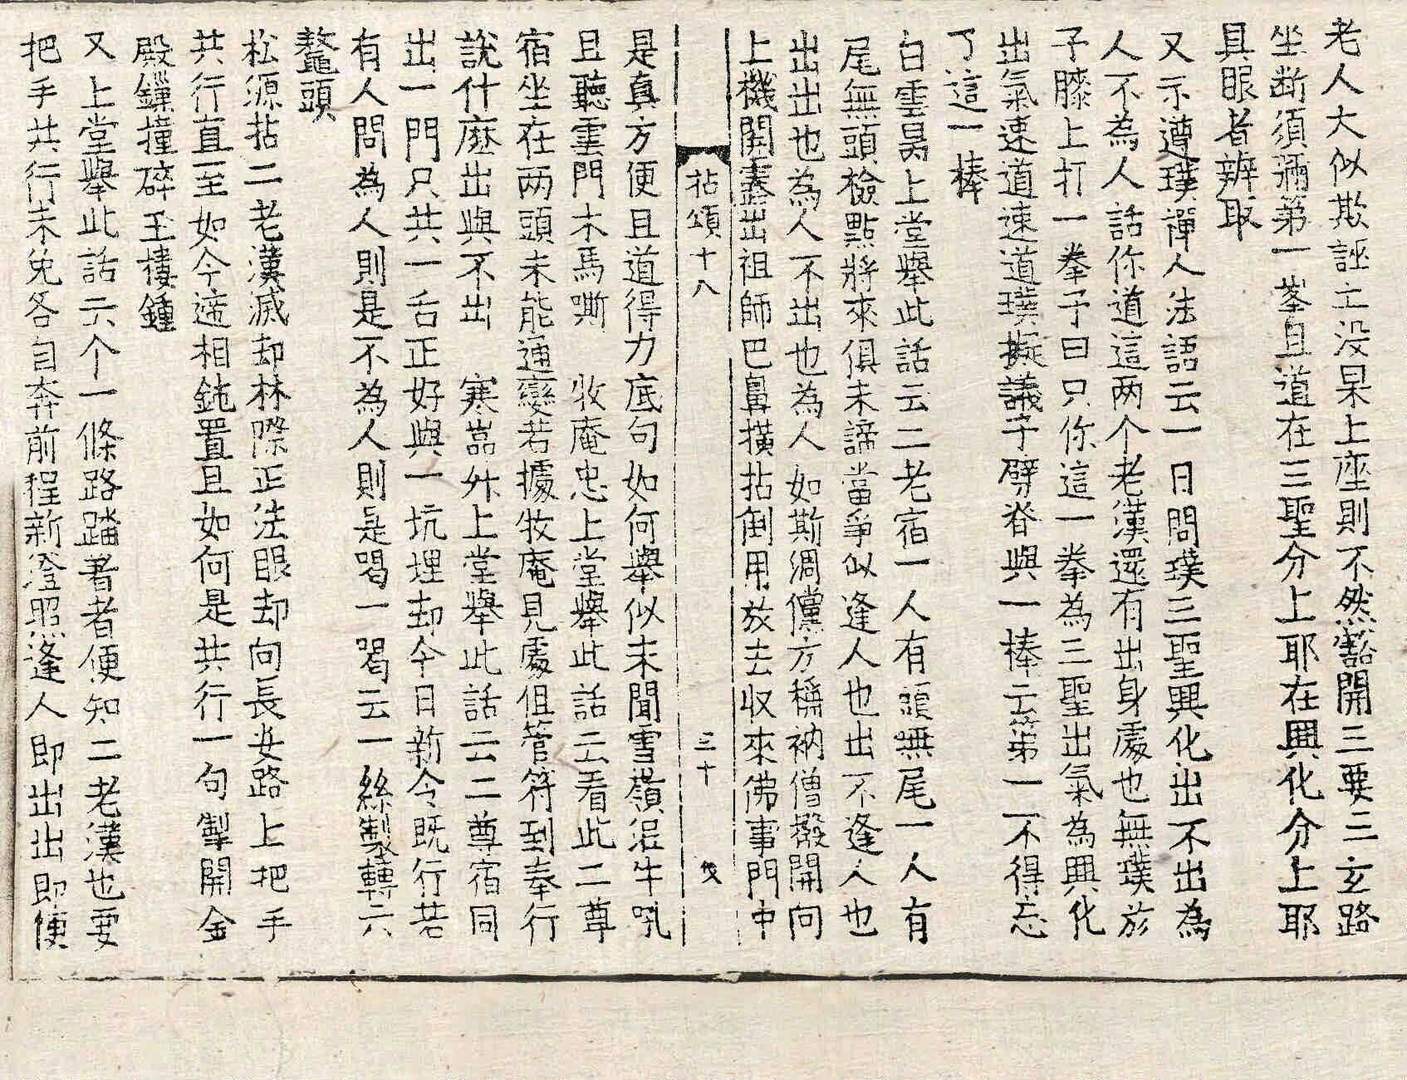 老人大似欺誣亡没杲上座則不然豁開三要三玄路
坐断須弥第一峯且道在三聖分上耶在興化分上耶
具眼者辨取
又示遵璞禅人法語云一日問璞三聖興化出不出為
人不為人話你道這两个老漢還有出身處也無璞於
子膝上打一拳予曰只你這一拳為三聖出氣為興化
出氣速道速道璞擬議予劈脊與一棒云第一不得忘
了這一棒
白雲昺上堂舉此話云二老宿一人有頭無尾一人有
尾無頭檢點將來俱未諦當爭似逢人也出不逢人也
出出也為人不出也為人如斯綢儻方稱衲僧撥開向
上機関𢴦出祖師巴鼻横拈倒用放去收來佛事門中
拈頌十八 三十
是真方便且道得力底句如何舉似未聞雪嶺泥牛吼
且聽雲門木馬嘶 牧庵忠上堂舉此話云看此二尊
宿坐在两頭未能通變若據牧庵見處但管符到奉行
說什麽出與不出 寒嵓升上堂舉此話云二尊宿同
出一門只共一舌正好與一坑埋却今日新令既行若
有人問為人則是不為人則是喝一喝云一絲掣轉六
鼇頭
松源拈二老漢滅却林際正法眼却向長安路上把手
共行直至如今遞相鈍置且如何是共行一句掣開金
殿鏁撞碎玉樓鍾
又上堂舉此話云个一條路踏著者便知二老漢也要
把手共行未免各自奔前程新澄照逢人即出出即便